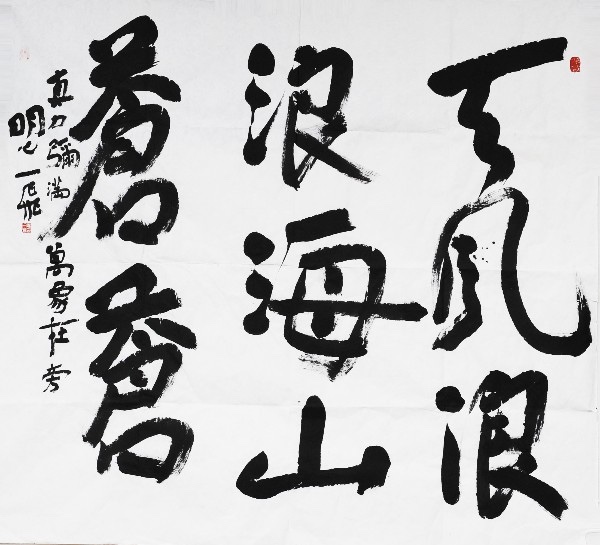 天風浪
浪海山
蒼蒼
真力彌滿 萬象在旁